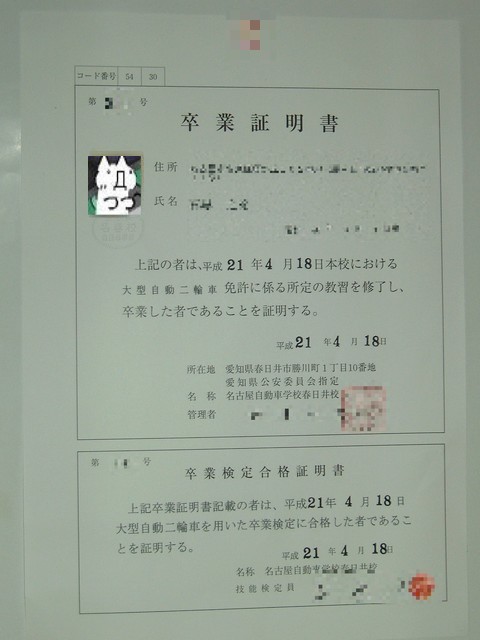 コード番号 54 30
第 号
卒業証明書
住所
氏名
上記の者は、平成 21 年 4 月 18日本校における
大型自動二輪車 免許に係る所定の教習を修了し、
卒業した者であることを証明する。
平成 21 年 4 月 18日
所在地 愛知県春日井市勝川町1丁目10番地
愛知県公安委員会指定
名称 名古屋自動車学校春日井校
管理者
第 号
卒業検定合格証明書
上記卒業証明書記載の者は、平成21年 4 月 18 日
大型自動二輪車を用いた卒業検定に合格した者であるこ
とを証明する。
平成 21 年 4 月 18日
名称 名古屋自動車学校春日井校
技能検定員